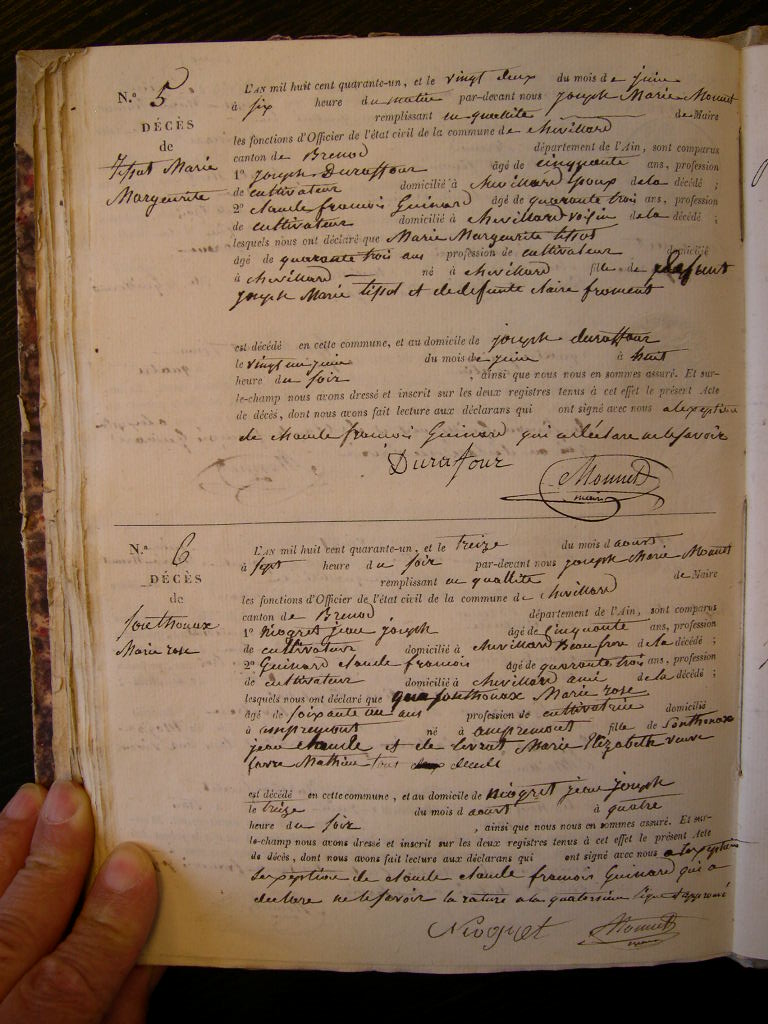 N.º 5
DÉCÈS
de
tissot Marie
Marguerite
L'AN mil huit cent quarante-un, et le vingt deux du mois de juin
à six heure du matin par-devant nous joseph Marie Monnet
remplissant en qualité de Maire
les fonctions d'Officier de l'état civil de la commune de chevillard
canton de Brenod département de l'Ain, sont comparus
1º joseph Duraffour âgé de cinquante ans, profession
de cultivateur domicilié à chevillard Epoux de la décédé ;
2º claude francois Guinard âgé de quarante trois ans, profession
de cultivateur domicilié à chevillard voisin de la décédé ;
lesquels nous ont déclaré que Marie Marguerite tissot
âgé de quarante trois ans profession de cultivateur domicilié
à chevillard né à chevillard fille de defunt
joseph Marie tissot et de defunte claire froment
est décédé en cette commune, et au domicile de joseph duraffour
le vingt un juin du mois de juin à huit
heure du soir , ainsi que nous nous en sommes assuré. Et sur-
le-champ nous avons dressé et inscrit sur les deux registres tenus à cet effet le présent Acte
de décès, dont nous avons fait lecture aux déclarans qui ont signé avec nous a lexeption
de claude francois Guinard qui a déclare ne le savoir
Durafour Monnet
maire
N.º 6
DÉCÈS
de
sonthonax
Marie rose
L'AN mil huit cent quarante-un, et le treize du mois d aoust
à sept heure du soir par-devant nous joseph Marie Monnet
remplissant en quallité de Maire
les fonctions d'Officier de l'état civil de la commune de chevillard
canton de Brenod département de l'Ain, sont comparus
1º Niogret jean joseph âgé de cinquante ans, profession
de cultivateur domicilié à chevillard Beaufrere de la décédé ;
2º Guinard claude francois âgé de quarante trois ans, profession
de cultivateur domicilié à chevillard ami de la décédé ;
lesquels nous ont déclaré que sonthonax Marie rose
âgé de soixante un ans profession de cultivatrice domicilié
à ampremont né à ampremont fille de Sonthonax
jean claude et de Levrat Marie Elizabeth veuve
favre Mathieu tous decede
est décédé en cette commune, et au domicile de Niogret jean joseph
le treize du mois d aoust à quatre
heure du soir , ainsi que nous nous en sommes assuré. Et sur-
le-champ nous avons dressé et inscrit sur les deux registres tenus à cet effet le présent Acte
de décès, dont nous avons fait lecture aux déclarans qui ont signé avec nous a lexeption
de claude claude francois Guinard qui a
declare ne le savoir la rature a la quatorsieme ligne d'approuvé
Niogret Monnet
maire